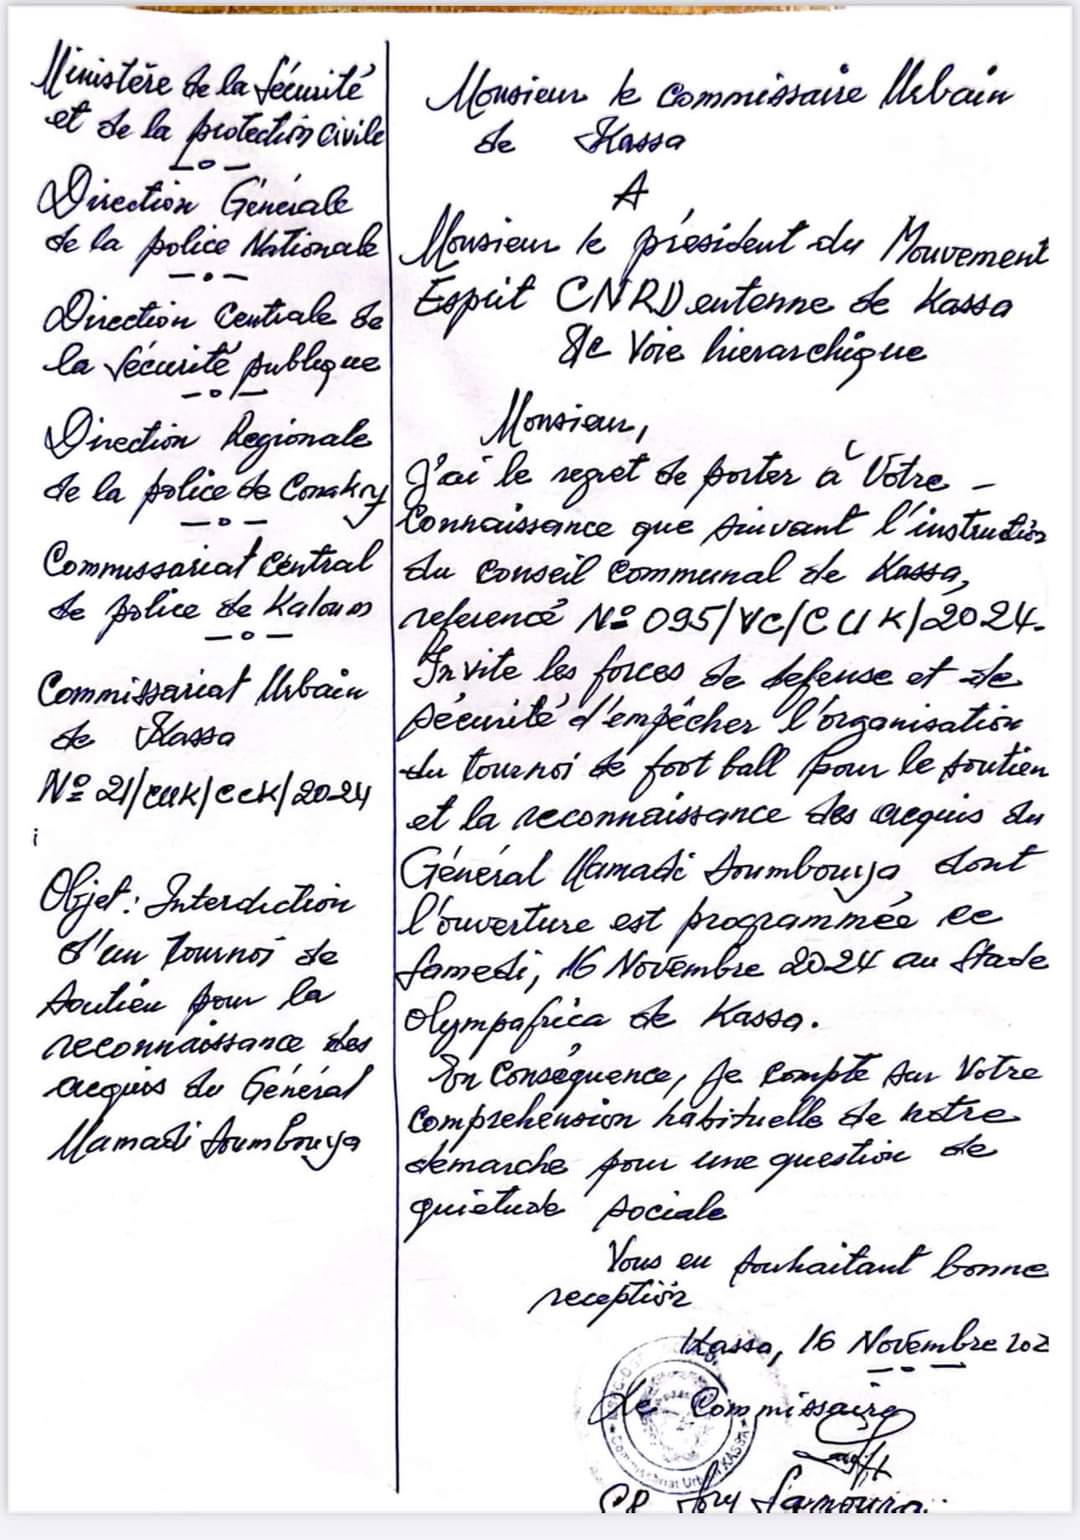 Ministère de la Sécurité
et de la protection civile
Direction Générale
de la police Nationale
Direction Centrale de
la Sécurité publique
Direction Regionale
de la police de Conakry
Commissariat Central
de police de Kaloum
Commissariat Urbain
de Kassa
Nº 21/CUK/CCK/2024
Objet: Interdiction
d'un Tournoi de
Soutien pour la
reconnaissance des
acquis du Général
Mamadi Doumbouya
Monsieur le Commissaire Urbain
de Kassa
A
Monsieur le président du Mouvement
Esprit CNRD entenne de Kassa
S/c Voie hierarchique
Monsieur,
J'ai le regret de porter à Votre
Connaissance que suivant l'instruction
du Conseil Communal de Kassa,
referencé Nº 095/VC/CUK/2024.
Invite les forces de defense et de
sécurité d'empêcher l'organisation
du tournoi de foot ball pour le soutien
et la reconnaissance des acquis du
Général Mamadi Doumbouya, dont
l'ouverture est programmée ce
Samedi, 16 Novembre 2024 au Stade
Olympafrica de Kassa.
En Conséquence, je compte sur Votre
comprehension habituelle de notre
demarche pour une question de
quiétude sociale
Vous en souhaitant bonne
reception
Kassa, 16 Novembre 202
Le Commissaire
Commissariat Urbain KASSA
CP Sory